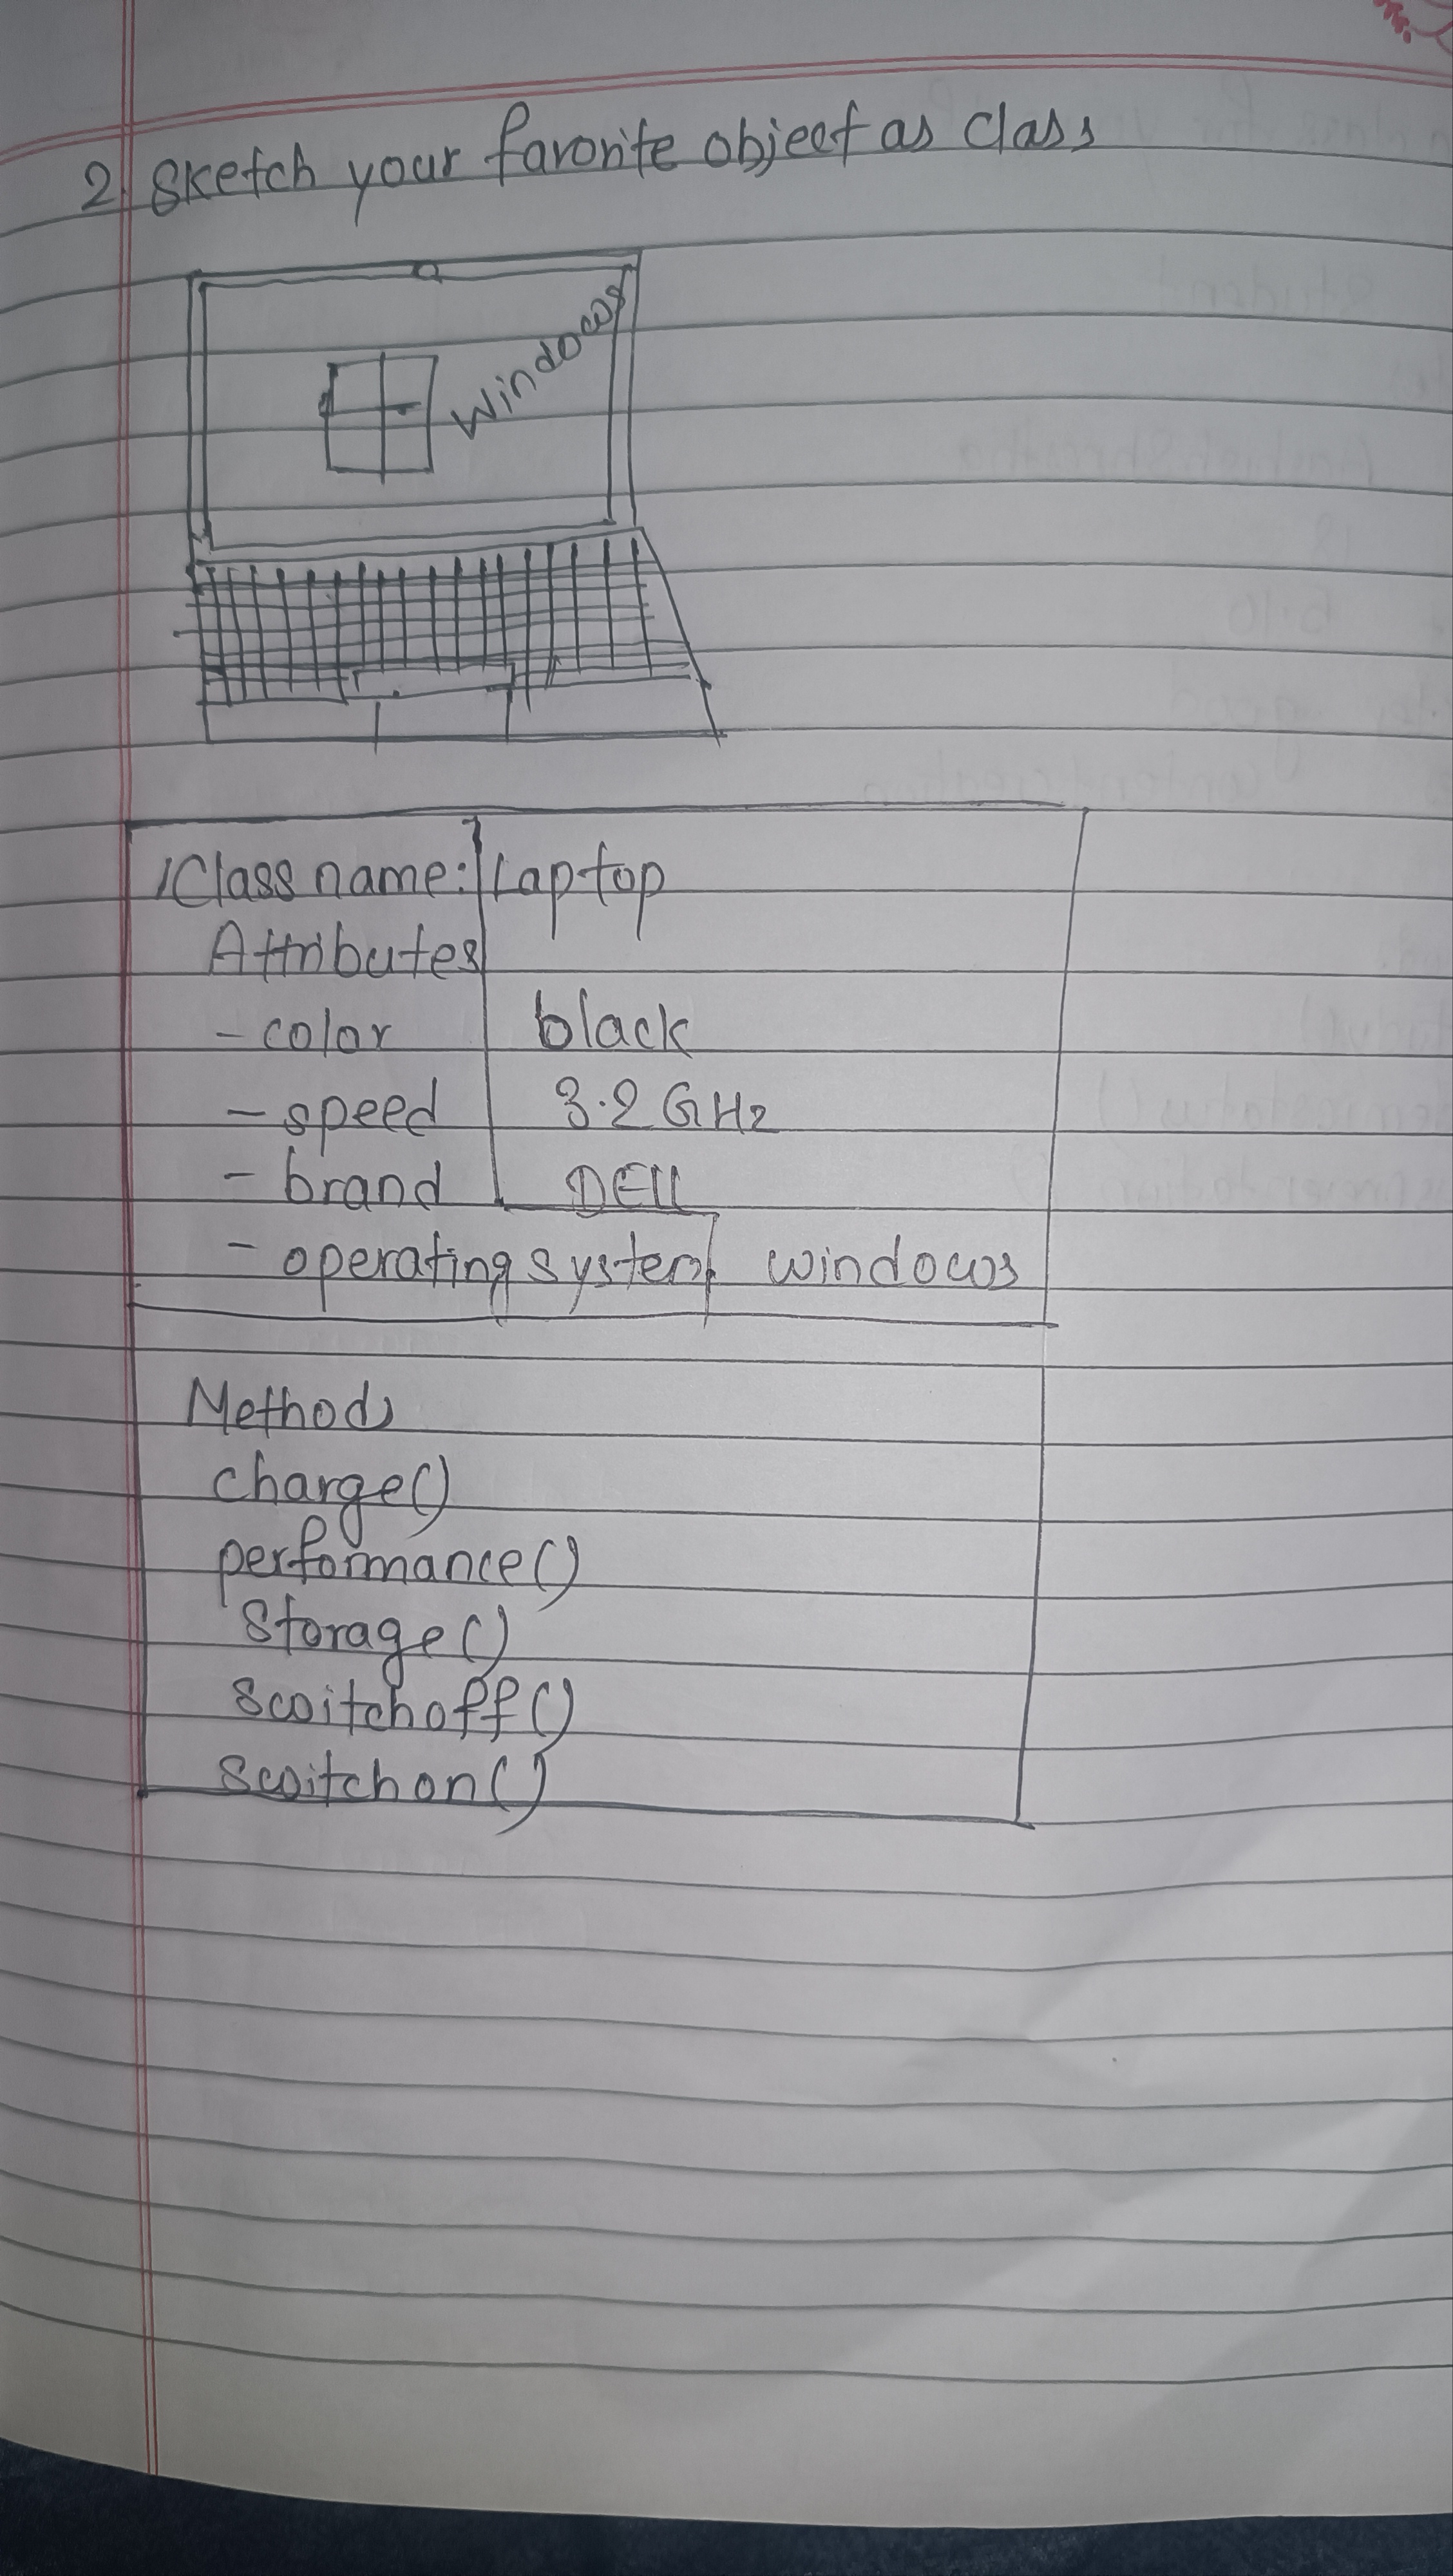 2. Sketch your favorite object as class
Windows
Class name: Laptop
Attributes
- color black
- speed 3.2 GHz
- brand DELL
- operating system windows
Methods
charge()
performance()
storage()
switchoff()
switchon()